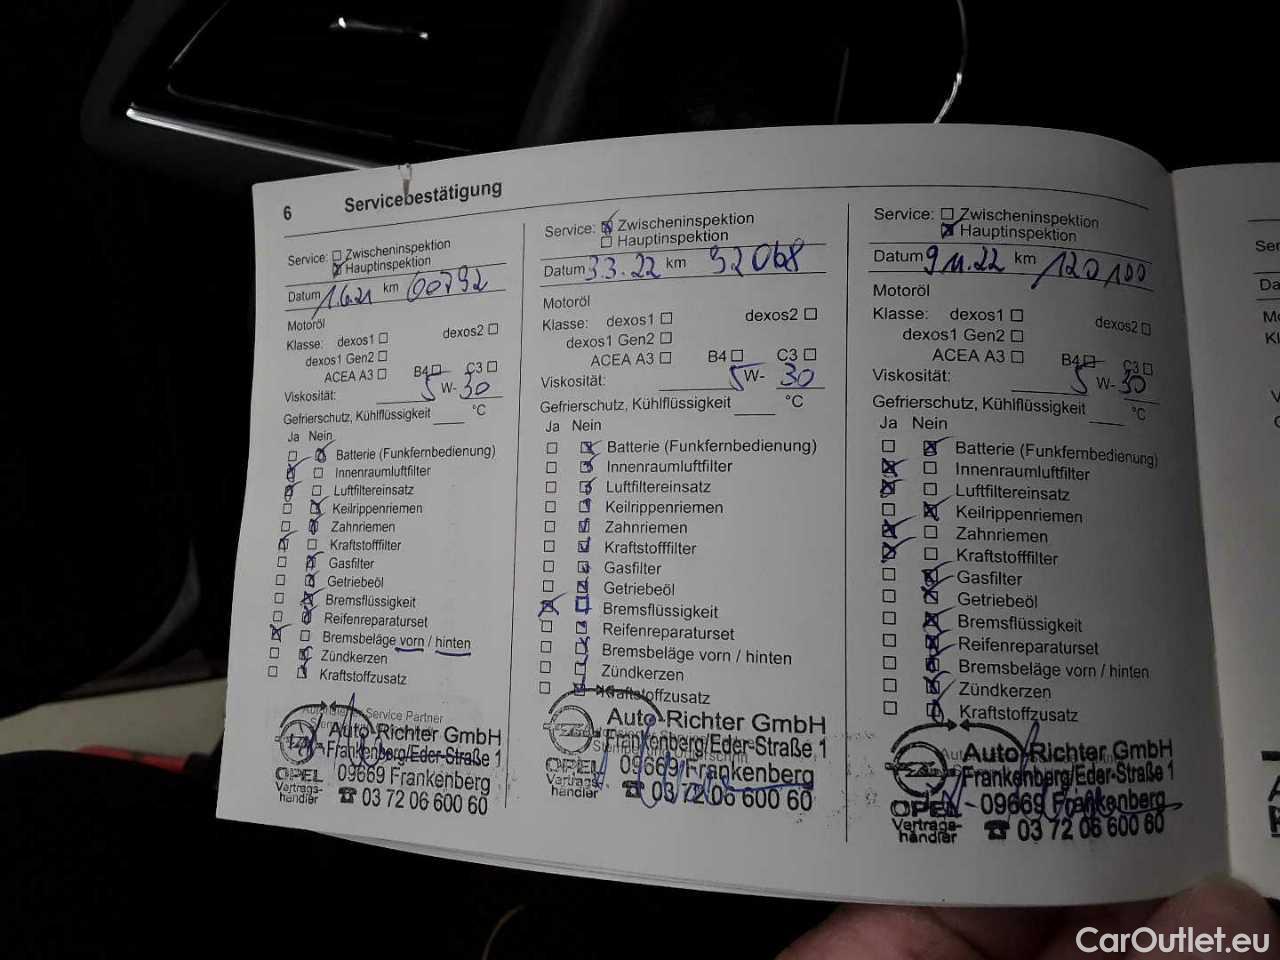 6 Servicebestätigung
Service: Zwischeninspektion
Hauptinspektion
Datum 1.6.21 km 60792
Motoröl
Klasse: dexos1 dexos2
dexos1 Gen2
ACEA A3 B4 C3
Viskosität: 5 W- 30
Gefrierschutz, Kühlflüssigkeit °C
Ja Nein
Batterie (Funkfernbedienung)
Innenraumluftfilter
Luftfiltereinsatz
Keilrippenriemen
Zahnriemen
Kraftstofffilter
Gasfilter
Getriebeöl
Bremsflüssigkeit
Reifenreparaturset
Bremsbeläge vorn / hinten
Zündkerzen
Kraftstoffzusatz
Service Partner
Auto-Richter GmbH
Frankenberg/Eder-Straße 1
OPEL 09669 Frankenberg
Vertrags-
händler ☎ 03 72 06 600 60
Service: Zwischeninspektion
Hauptinspektion
Datum 3.3.22 km 92068
Motoröl
Klasse: dexos1 dexos2
dexos1 Gen2
ACEA A3 B4 C3
Viskosität: 5 W- 30
Gefrierschutz, Kühlflüssigkeit °C
Ja Nein
Batterie (Funkfernbedienung)
Innenraumluftfilter
Luftfiltereinsatz
Keilrippenriemen
Zahnriemen
Kraftstofffilter
Gasfilter
Getriebeöl
Bremsflüssigkeit
Reifenreparaturset
Bremsbeläge vorn / hinten
Zündkerzen
Kraftstoffzusatz
Auto-Richter GmbH
Frankenberg/Eder-Straße 1
OPEL 09669 Frankenberg
Vertrags-
händler ☎ 03 72 06 600 60
Service: Zwischeninspektion
Hauptinspektion
Datum 9.11.22 km 120100
Motoröl
Klasse: dexos1 dexos2
dexos1 Gen2
ACEA A3 B4 C3
Viskosität: 5 W- 30
Gefrierschutz, Kühlflüssigkeit °C
Ja Nein
Batterie (Funkfernbedienung)
Innenraumluftfilter
Luftfiltereinsatz
Keilrippenriemen
Zahnriemen
Kraftstofffilter
Gasfilter
Getriebeöl
Bremsflüssigkeit
Reifenreparaturset
Bremsbeläge vorn / hinten
Zündkerzen
Kraftstoffzusatz
Auto-Richter GmbH
Frankenberg/Eder-Straße 1
OPEL 09669 Frankenberg
Vertrags-
händler ☎ 03 72 06 600 60
CarOutlet.eu